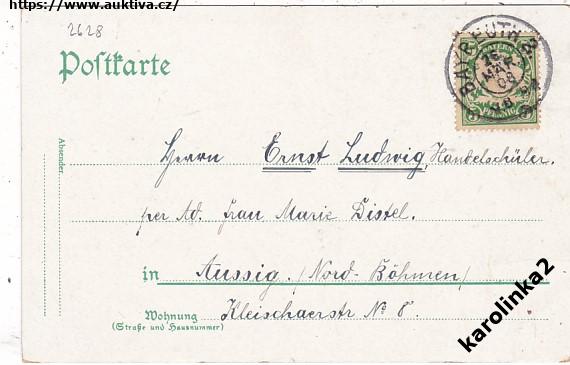 https://www.auktiva.cz/
2628
Postkarte
BAYREUTH 2
15.
MÄR
08
BAYERN
5 PFENNIG 5
Absender
Herrn Ernst Ludwig, Handelschüler.
per Ad. Frau Marie Distel.
in Aussig. (Nord-Böhmen)
Wohnung Kleischaerstr № 8.
(Straße und Hausnummer)
karolinka2